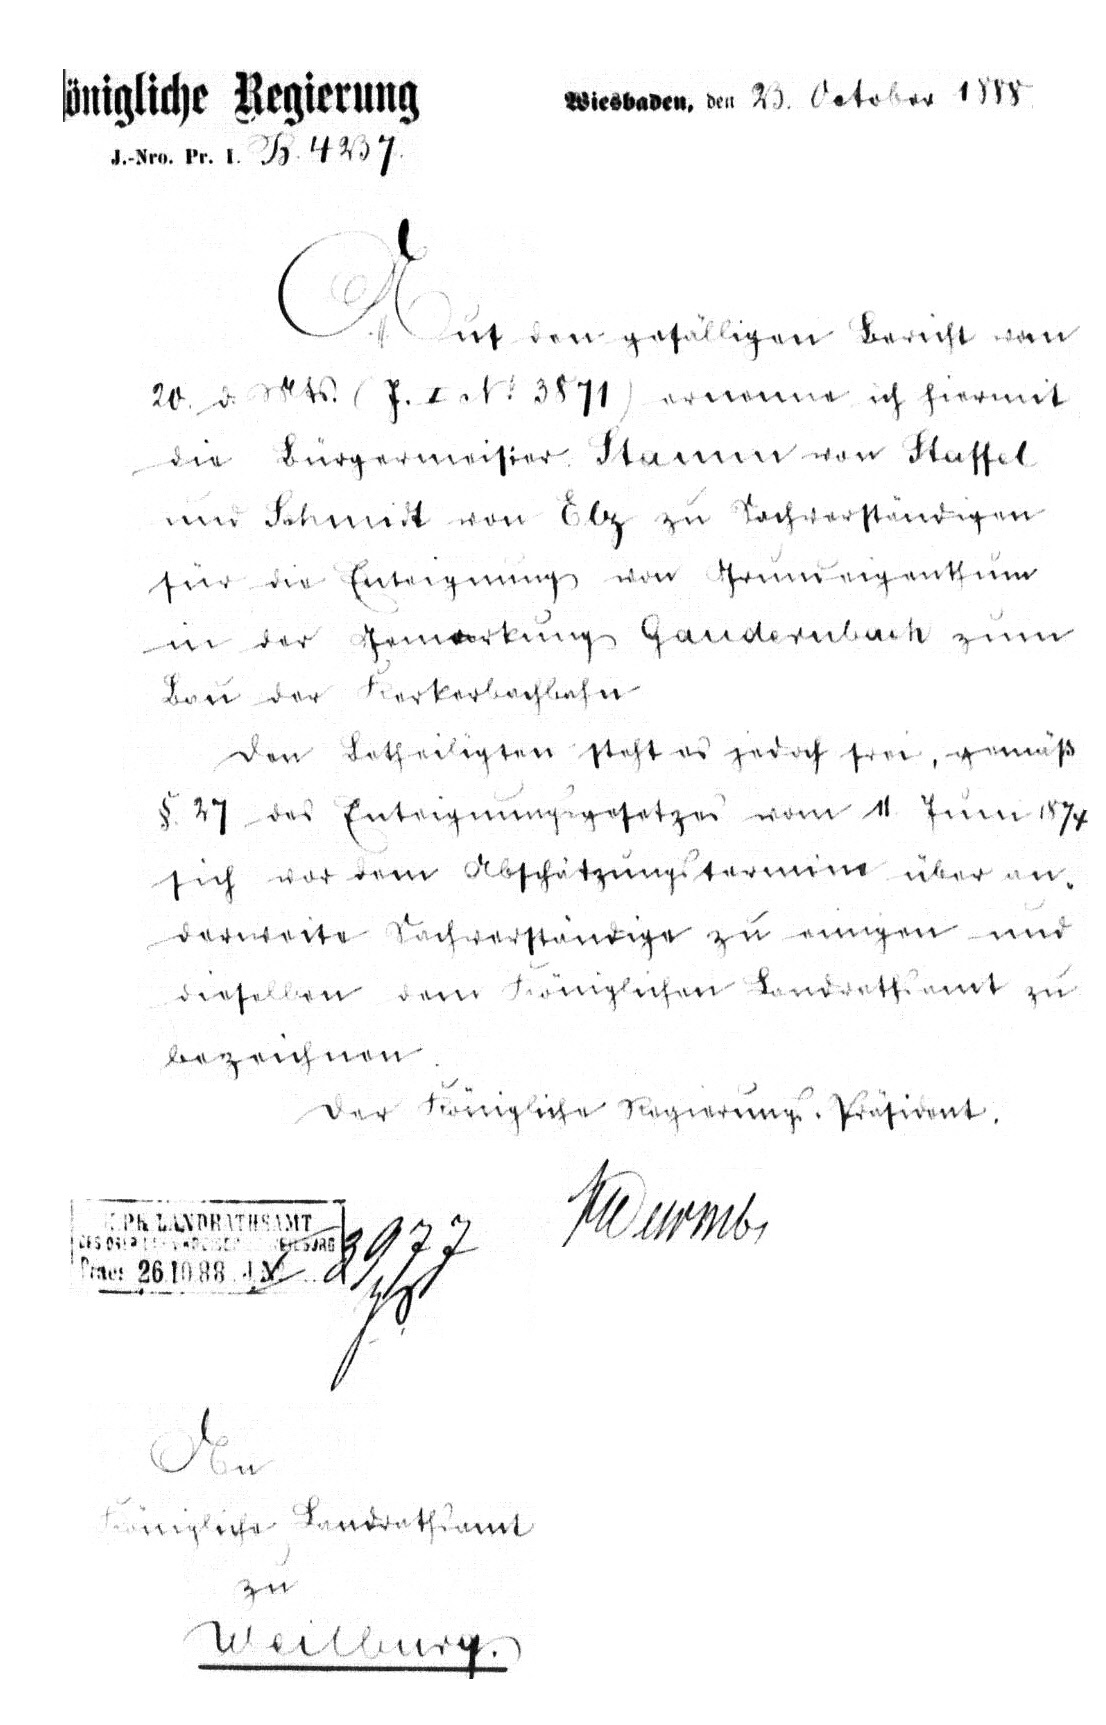 önigliche Regierung
Wiesbaden, den 23. October 1888.
J.-Nro. Pr. I. B. 4237.
Auf den gefälligen Bericht vom
20. d. Mts. (J. I No 3871) ernenne ich hiermit
die Bürgermeister Stamm von Staffel
und Schmidt von Elz zu Sachverständigen
für die Enteignung von Grundeigenthum
in der Gemarkung Gaudernbach zum
Bau der Kerkerbachbahn
Den Betheiligten steht es jedoch frei, gemäß
§. 27 des Enteignungsgesetzes vom 11. Juni 1874
sich vor dem Abschätzungstermine über an-
derweite Sachverständige zu einigen und
dieselben dem Königlichen Landrathsamt zu
bezeichnen.
Der Königliche Regierungs-Präsident.
Wurmb
LANDRATHSAMT
Praes 26.10.88. J.No 3977
An
Königliche Landrathsamt
zu
Weilburg.